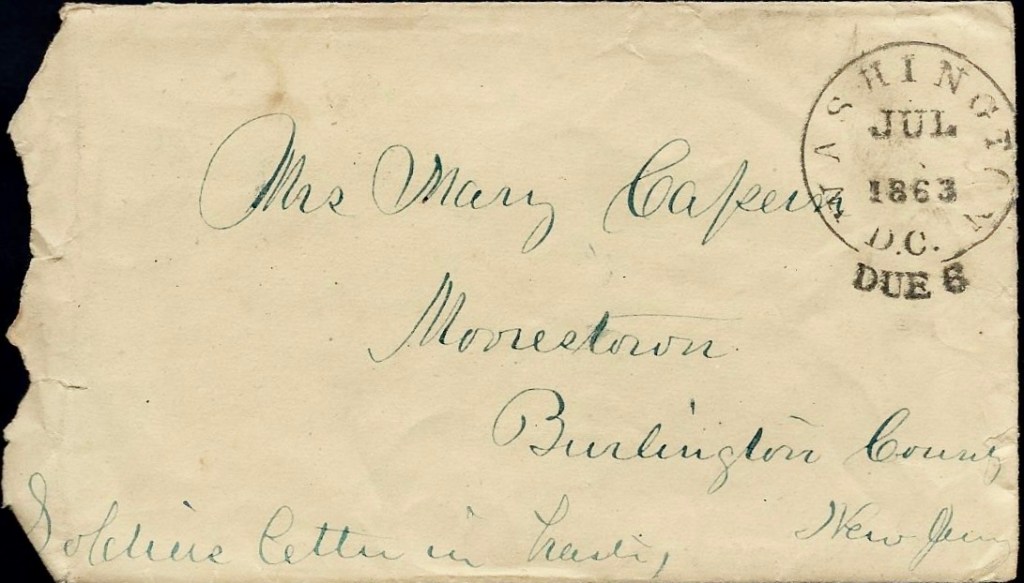 WASHINGTON
JUL
1863
D.C.
DUE 6
Mrs Mary
Moorestown
Burlington County
New Jersey
Soldiers letter in haste,